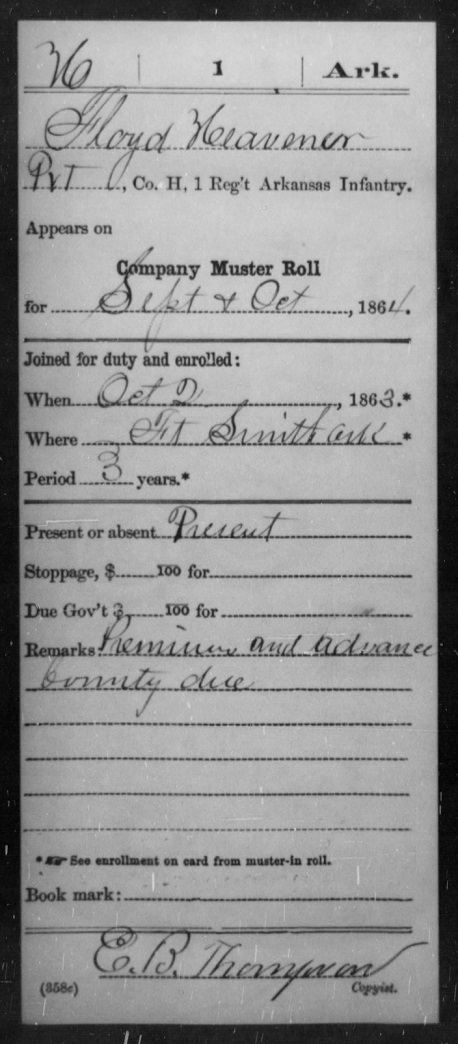 H | 1 | Ark.
Floyd Heavener
Pvt, Co. H, 1 Reg't Arkansas Infantry.
Appears on
Company Muster Roll
for Sept & Oct, 1864.
Joined for duty and enrolled:
When Oct 2, 1863.*
Where Ft Smith Ark *
Period 3 years.*
Present or absent Present
Stoppage, $ 100 for
Due Gov't $ 100 for
Remarks: Premium and advance
bounty due
* ☛ See enrollment on card from muster-in roll.
Book mark:
E. B. Thompson
(358c) Copyist.